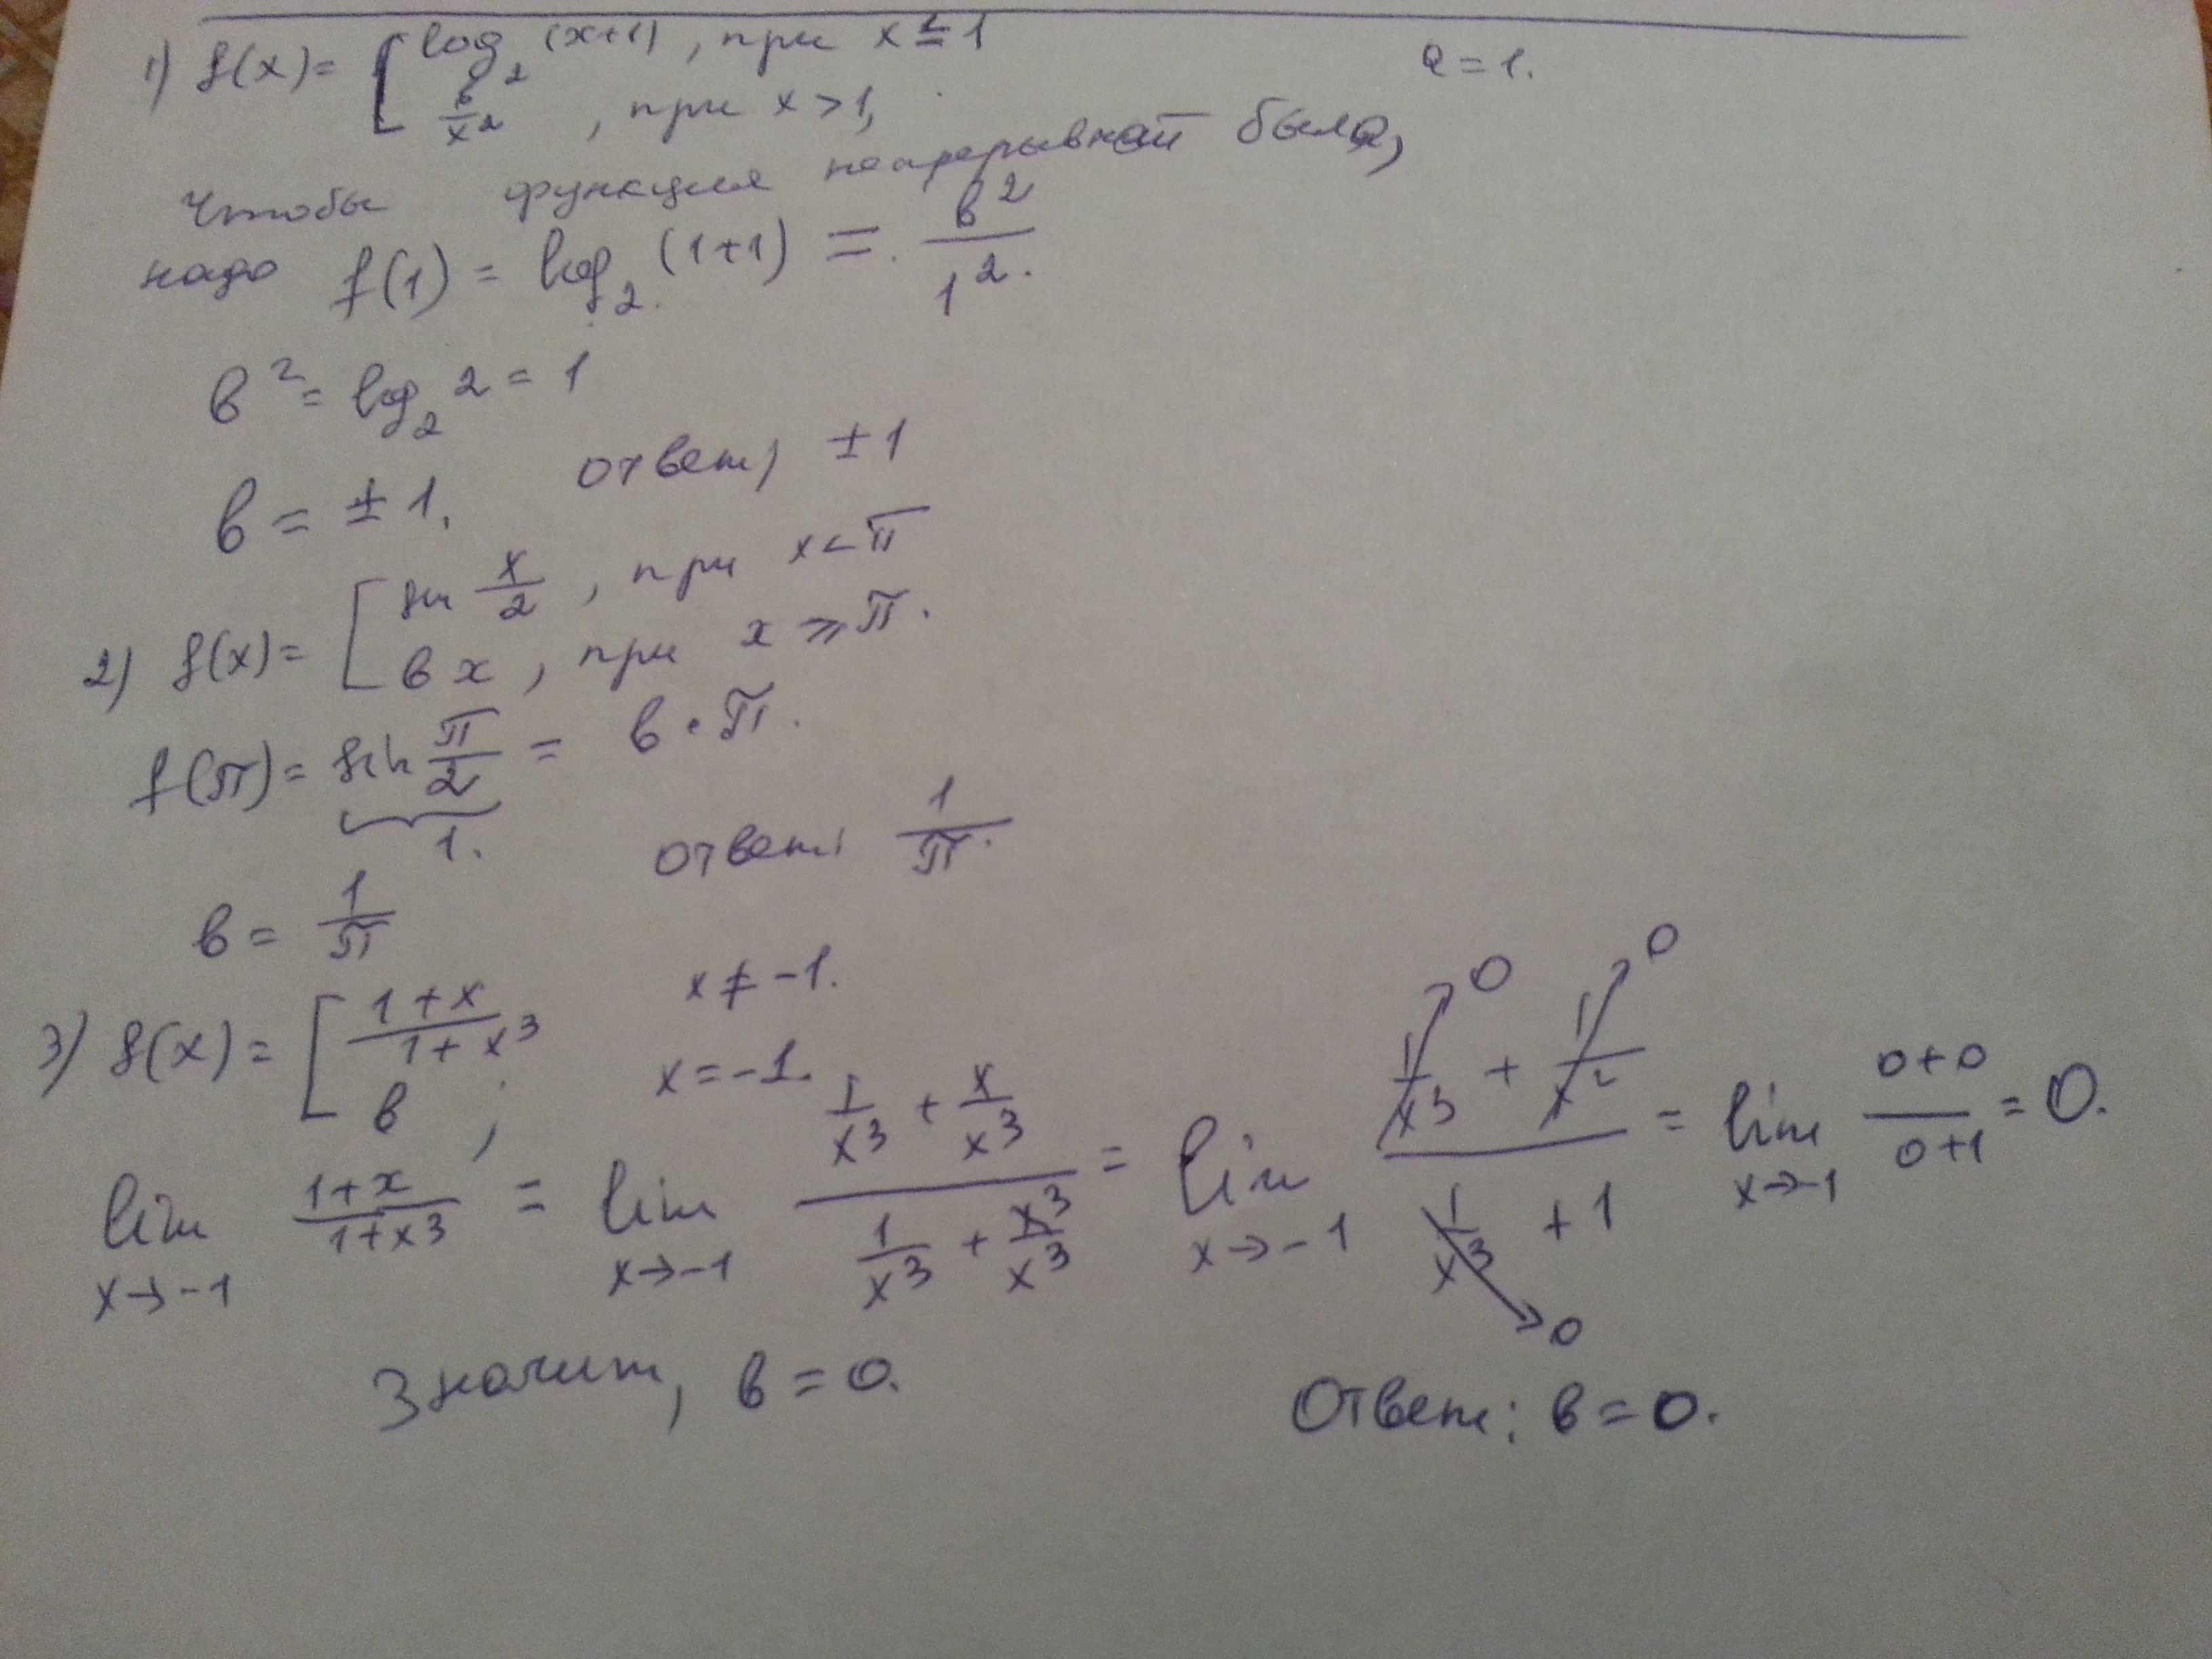 1) f(x) = [ log₂ (x+1), при x ≤ 1
a = 1.
в/x², при x > 1,
Чтобы функция непрерывной была,
надо f(1) = log₂ (1+1) = в²/1².
в² = log₂ 2 = 1
в = ±1. ответ, ±1
2) f(x) = [ sin x/2, при x < π
вx, при x ⩾ π.
f(π) = sin π/2 = в · π.
1.
в = 1/π ответ: 1/π.
3) f(x) = [ (1+x)/(1+x³) x ≠ -1.
в; x = -1.
lim x→-1 (1+x)/(1+x³) = lim x→-1 (1/x³ + x/x³)/(1/x³ + x³/x³) = lim x→-1 (1/x³→0 + 1/x²→0)/(1/x³→0 + 1) = lim x→-1 (0+0)/(0+1) = 0.
Значит, в = 0. Ответ: в = 0.